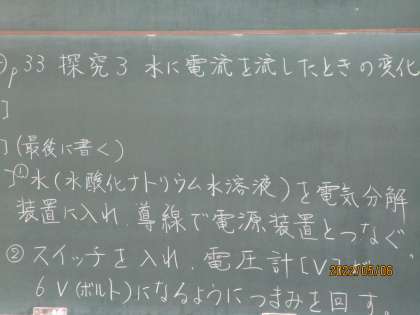 p33 探究3 水に電流を流したときの変化
]
](最後に書く)
]①水(水酸化ナトリウム水溶液)を電気分解
装置に入れ、導線で電源装置とつなぐ。
②スイッチを入れ、電圧計[V]が
6V(ボルト)になるようにつまみを回す。
2022/05/06